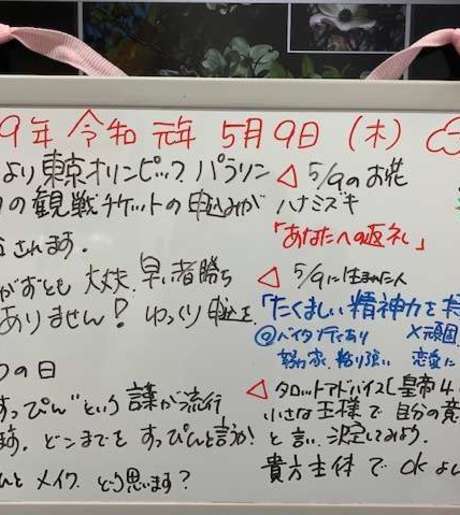 9年 令和 元年 5月9日 (木)
より 東京オリンピック パラリン
の観戦チケットの申込みが
されます.
がおとも 大丈夫. 早い者勝ち
ありません! ゆっくり 申込を
の日
すっぴん"という 謎が流行
ます. どこまでを すっぴんと言うか
んと メイク. どう思います?
△ 5/9のお花
ハナミズキ
「あなたへの返礼」
△ 5/9に生まれた人
「たくましい 精神力を
◎バイタリティあり ×頑固
努力家. 粘り強い 恋愛に
△ タロットアドバイス[皇帝4
小さな王様で 自分の意
と言い. 決定してみよう.
貴方主体で OKよ